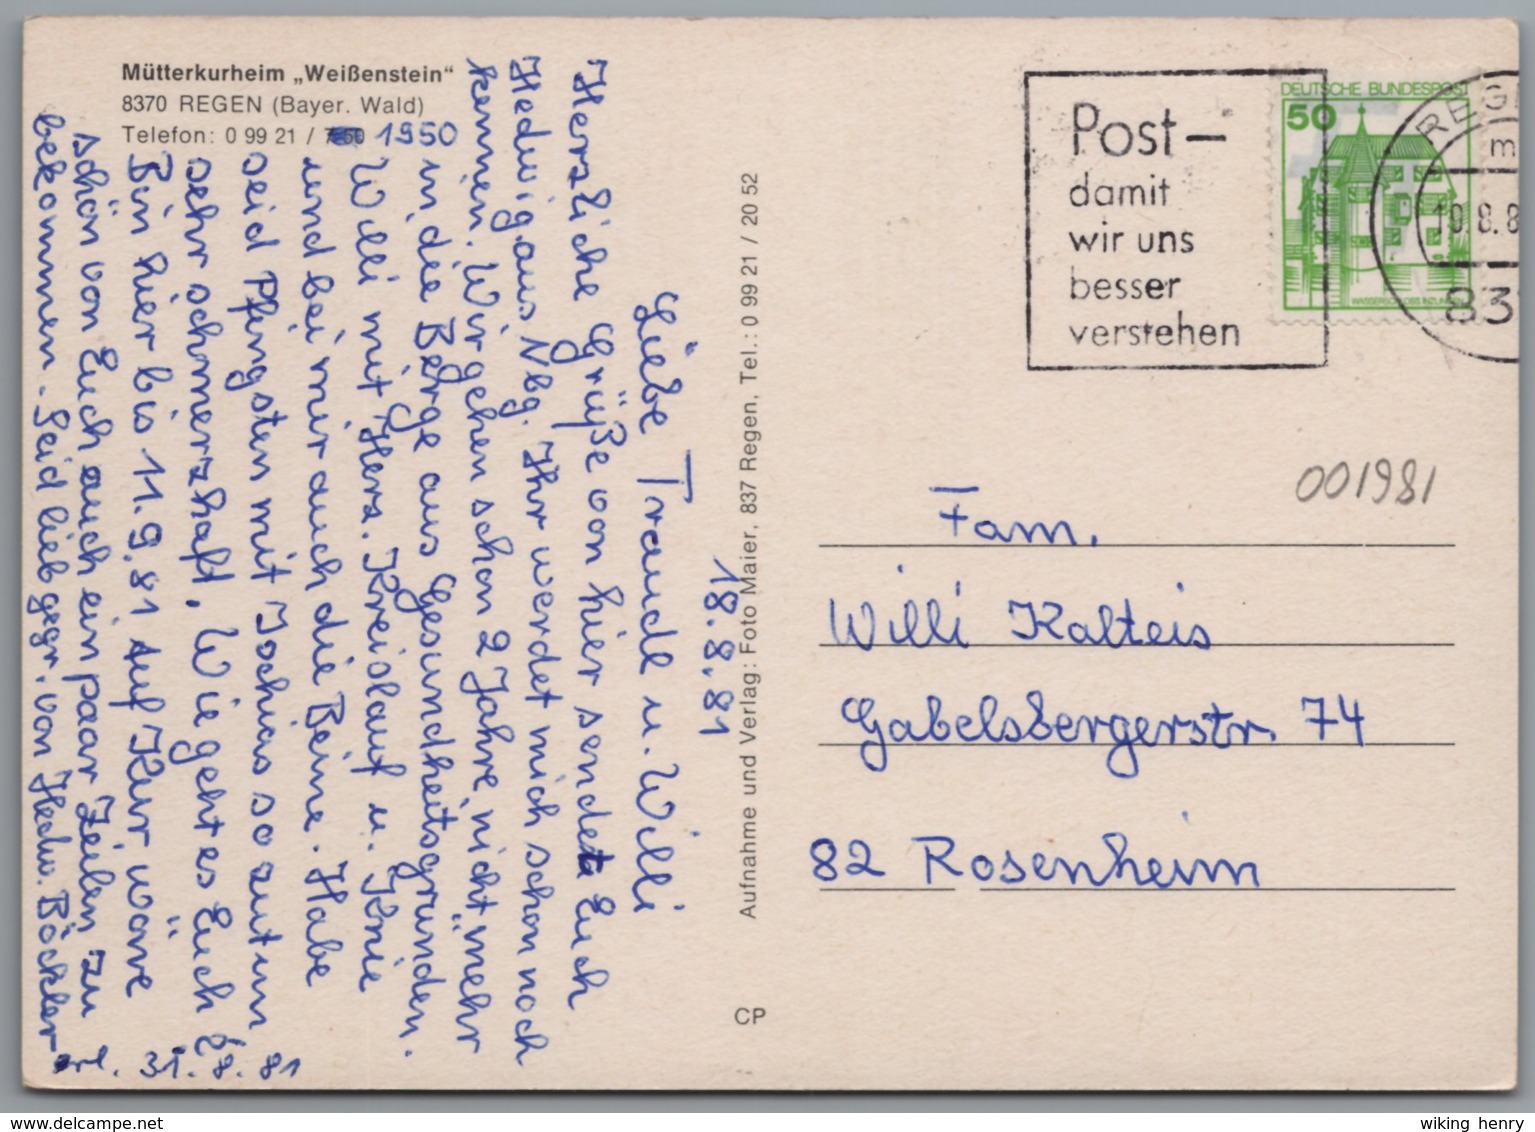 Mütterkurheim „Weißenstein“
8370 REGEN (Bayer. Wald)
Telefon: 0 99 21 / 1950
18.8.81
Liebe Traudl u. Willi
Herzliche Grüße von hier sendet Euch
Hedwig aus Nbg. Ihr werdet mich schon noch
kennen. Wir gehen schon 2 Jahre nicht mehr
in die Berge aus Gesundheitsgründen.
Willi mit Herz. Kreislauf u. Knie
und bei mir auch die Beine. Habe
seid Pfingsten mit Ischias so autum
sehr schmerzhaft. Wie geht es Euch?
Bin hier bis 11.9.81 auf Kur wäre
schön von Euch auch ein paar Zeilen zu
bekommen. Seid lieb gegr. von Hedw. Böckler
erl. 31.8.81
Aufnahme und Verlag: Foto Maier, 837 Regen, Tel.: 0 99 21 / 20 52
CP
Post –
damit
wir uns
besser
verstehen
DEUTSCHE BUNDESPOST
50
WASSERSCHLOSS INZLINGEN
REG
m
19.8.8
83
001981
Fam.
Willi Kalteis
Gabelsbergerstr. 74
82 Rosenheim
wiking henry
delcampe.net